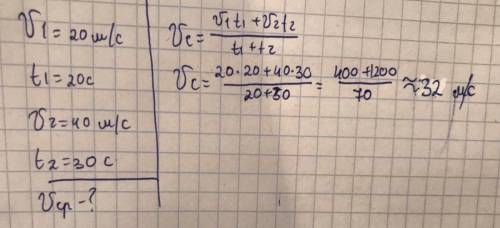 V₁ = 20 м/с
t₁ = 20 с
V₂ = 40 м/с
t₂ = 30 с
Vср - ?
Vc = (V₁t₁ + V₂t₂) / (t₁ + t₂)
Vc = (20·20 + 40·30) / (20 + 30) = (400 + 1200) / 70 ≈ 32 м/с